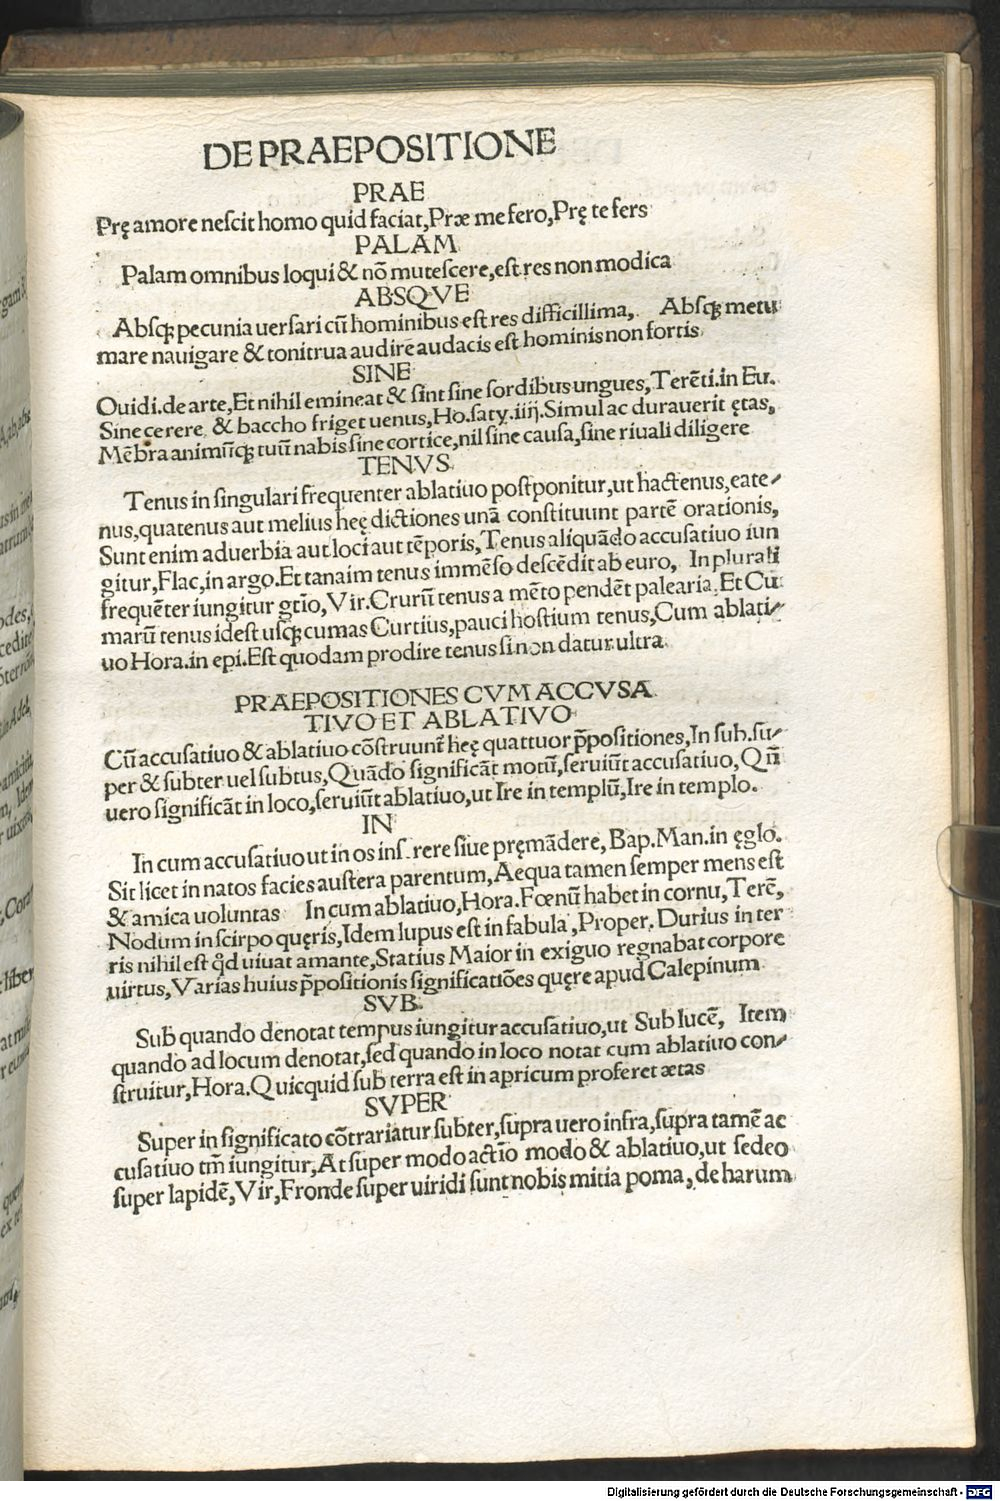 DE PRAEPOSITIONE
PRAE
Prę amore neſcit homo quid faciat, Præ me fero, Prę te fers
PALAM
Palam omnibus loqui & nõ muteſcere, eſt res non modica
ABSQVE
Abſqꝫ pecunia uerſari cũ hominibus eſt res difficillima, Abſqꝫ metu
mare nauigare & tonitrua audire audacis eſt hominis non fortis
SINE
Ouidi. de arte, Et nihil emineat & ſint ſine ſordibus ungues, Terẽti. in Eu.
Sine cerere & baccho friget uenus, Ho. ſaty. iiij. Simul ac durauerit ętas,
Mẽbra animũqꝫ tuũ nabis ſine cortice, nil ſine cauſa, ſine riuali diligere
TENVS
Tenus in ſingulari frequenter ablatiuo poſtponitur, ut hactenus, eate⸗
nus, quatenus aut melius heę dictiones unã conſtituunt partẽ orationis,
Sunt enim aduerbia aut loci aut tẽporis, Tenus aliquãdo accuſatiuo iun
gitur, Flac, in argo. Et tanaim tenus immẽſo deſcẽdit ab euro, In plurali
frequẽter iungitur gtĩo, Vir. Crurũ tenus a mẽto pendẽt palearia. Et Cu
marũ tenus ideſt uſqꝫ cumas Curtius, pauci hoſtium tenus, Cum ablati⸗
uo Hora. in epi. Eſt quodam prodire tenus ſi non datur ultra.
PRAEPOSITIONES CVM ACCVSA
TIVO ET ABLATIVO
Cũ accuſatiuo & ablatiuo cõſtruunt᷑ heę quattuor p̃poſitiones, In ſub. ſu⸗
per & ſubter uel ſubtus, Quãdo ſignificãt motũ, ſeruiũt accuſatiuo, Qñ
uero ſignificãt in loco, ſeruiũt ablatiuo, ut Ire in templũ, Ire in templo.
IN
In cum accuſatiuo ut in os inſ rere ſiue pręmãdere, Bap. Man. in ęglo.
Sit licet in natos facies auſtera parentum, Aequa tamen ſemper mens eſt
& amica uoluntas In cum ablatiuo, Hora. Fœnũ habet in cornu, Terẽ,
Nodum in ſcirpo quęris, Idem lupus eſt in fabula, Proper. Durius in ter
ris nihil eſt q̃d uiuat amante, Statius Maior in exiguo regnabat corpore
uirtus, Varias huius p̃poſitionis ſignificatiões quęre apud Calepinum
SVB
Sub quando denotat tempus iungitur accuſatiuo, ut Sub lucẽ, Item
quando ad locum denotat, ſed quando in loco notat cum ablatiuo con⸗
ſtruitur, Hora. Quicquid ſub terra eſt in apricum proferet ætas
SVPER
Super in ſignificato cõtrariatur ſubter, ſupra uero infra, ſupra tamẽ ac
cuſatiuo tm̃ iungitur, At ſuper modo actĩo modo & ablatiuo, ut ſedeo
ſuper lapidẽ, Vir, Fronde ſuper uiridi ſunt nobis mitia poma, de harum
Digitalisierung gefördert durch die Deutsche Forschungsgemeinschaft - DFG